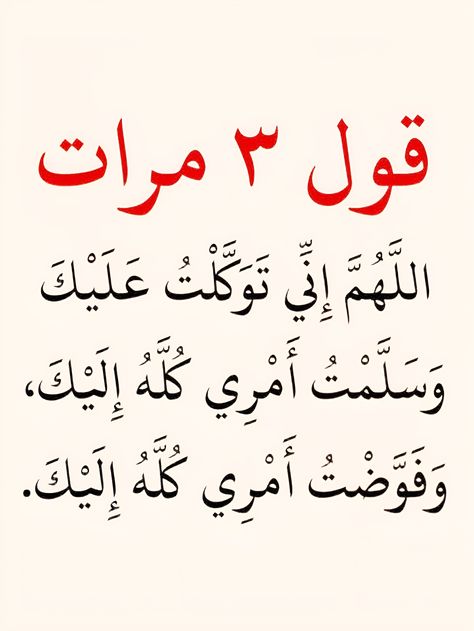 قول ٣ مرات
اللَّهُمَّ إِنِّي تَوَكَّلْتُ عَلَيْكَ
وَسَلَّمْتُ أَمْرِي كُلَّهُ إِلَيْكَ،
وَفَوَّضْتُ أَمْرِي كُلَّهُ إِلَيْكَ.